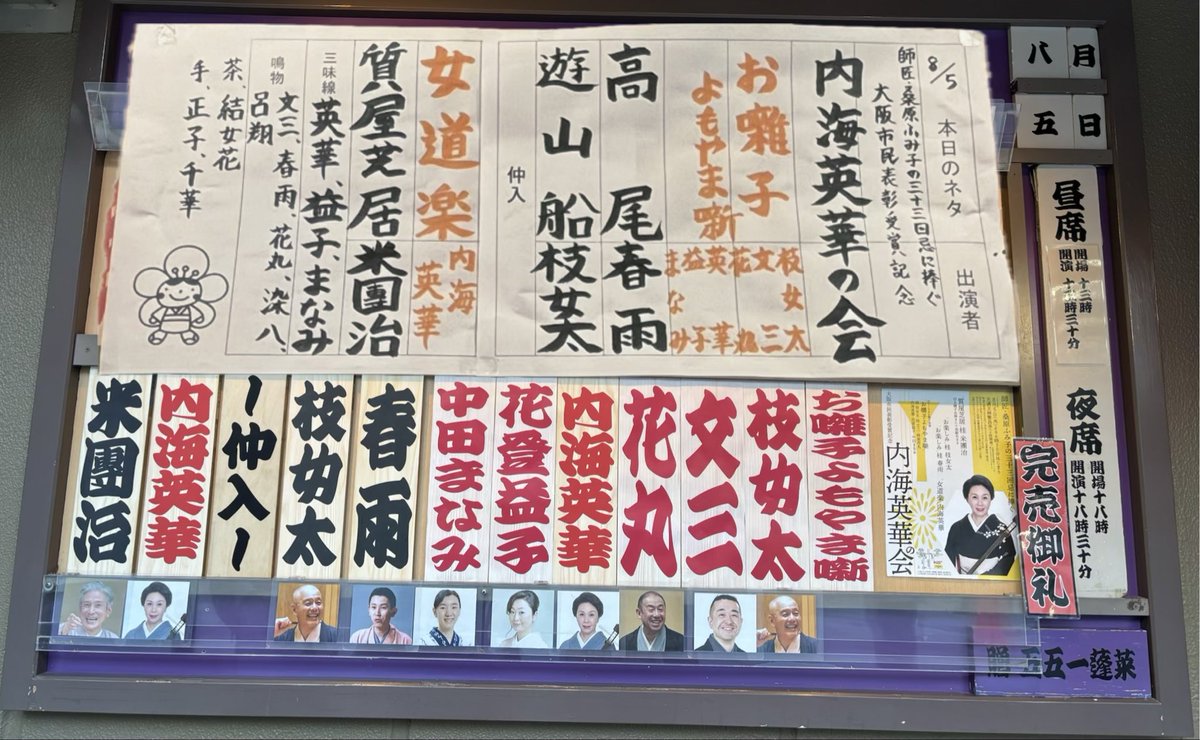 八月
五日
昼席
開場十二時
開演十二時三十分
夜席
開場十八時
開演十八時三十分
完売御礼
贈 五五一蓬莱
8/5 本日のネタ 出演者
師匠・桑原ふみ子の三十三回忌に捧ぐ
大阪市民表彰受賞記念
内海英華の会
お囃子
よもやま噺
枝女太
文三
花丸
英華
益子
まなみ
高尾 春雨
遊山船 枝女太
仲入
女道楽 内海英華
質屋芝居 米團治
三味線 英華、益子、まなみ
鳴物 文三、春雨、花丸、染八、
呂翔
茶、結女花
手、正子、千華
内海英華の会
質屋芝居 桂米團治
お楽しみ 桂枝女太
お楽しみ 桂春雨
女道楽 内海英華
お囃子よもやま噺
枝女太
文三
花丸
内海英華
花登益子
中田まなみ
春雨
枝女太
〜仲入〜
内海英華
米團治